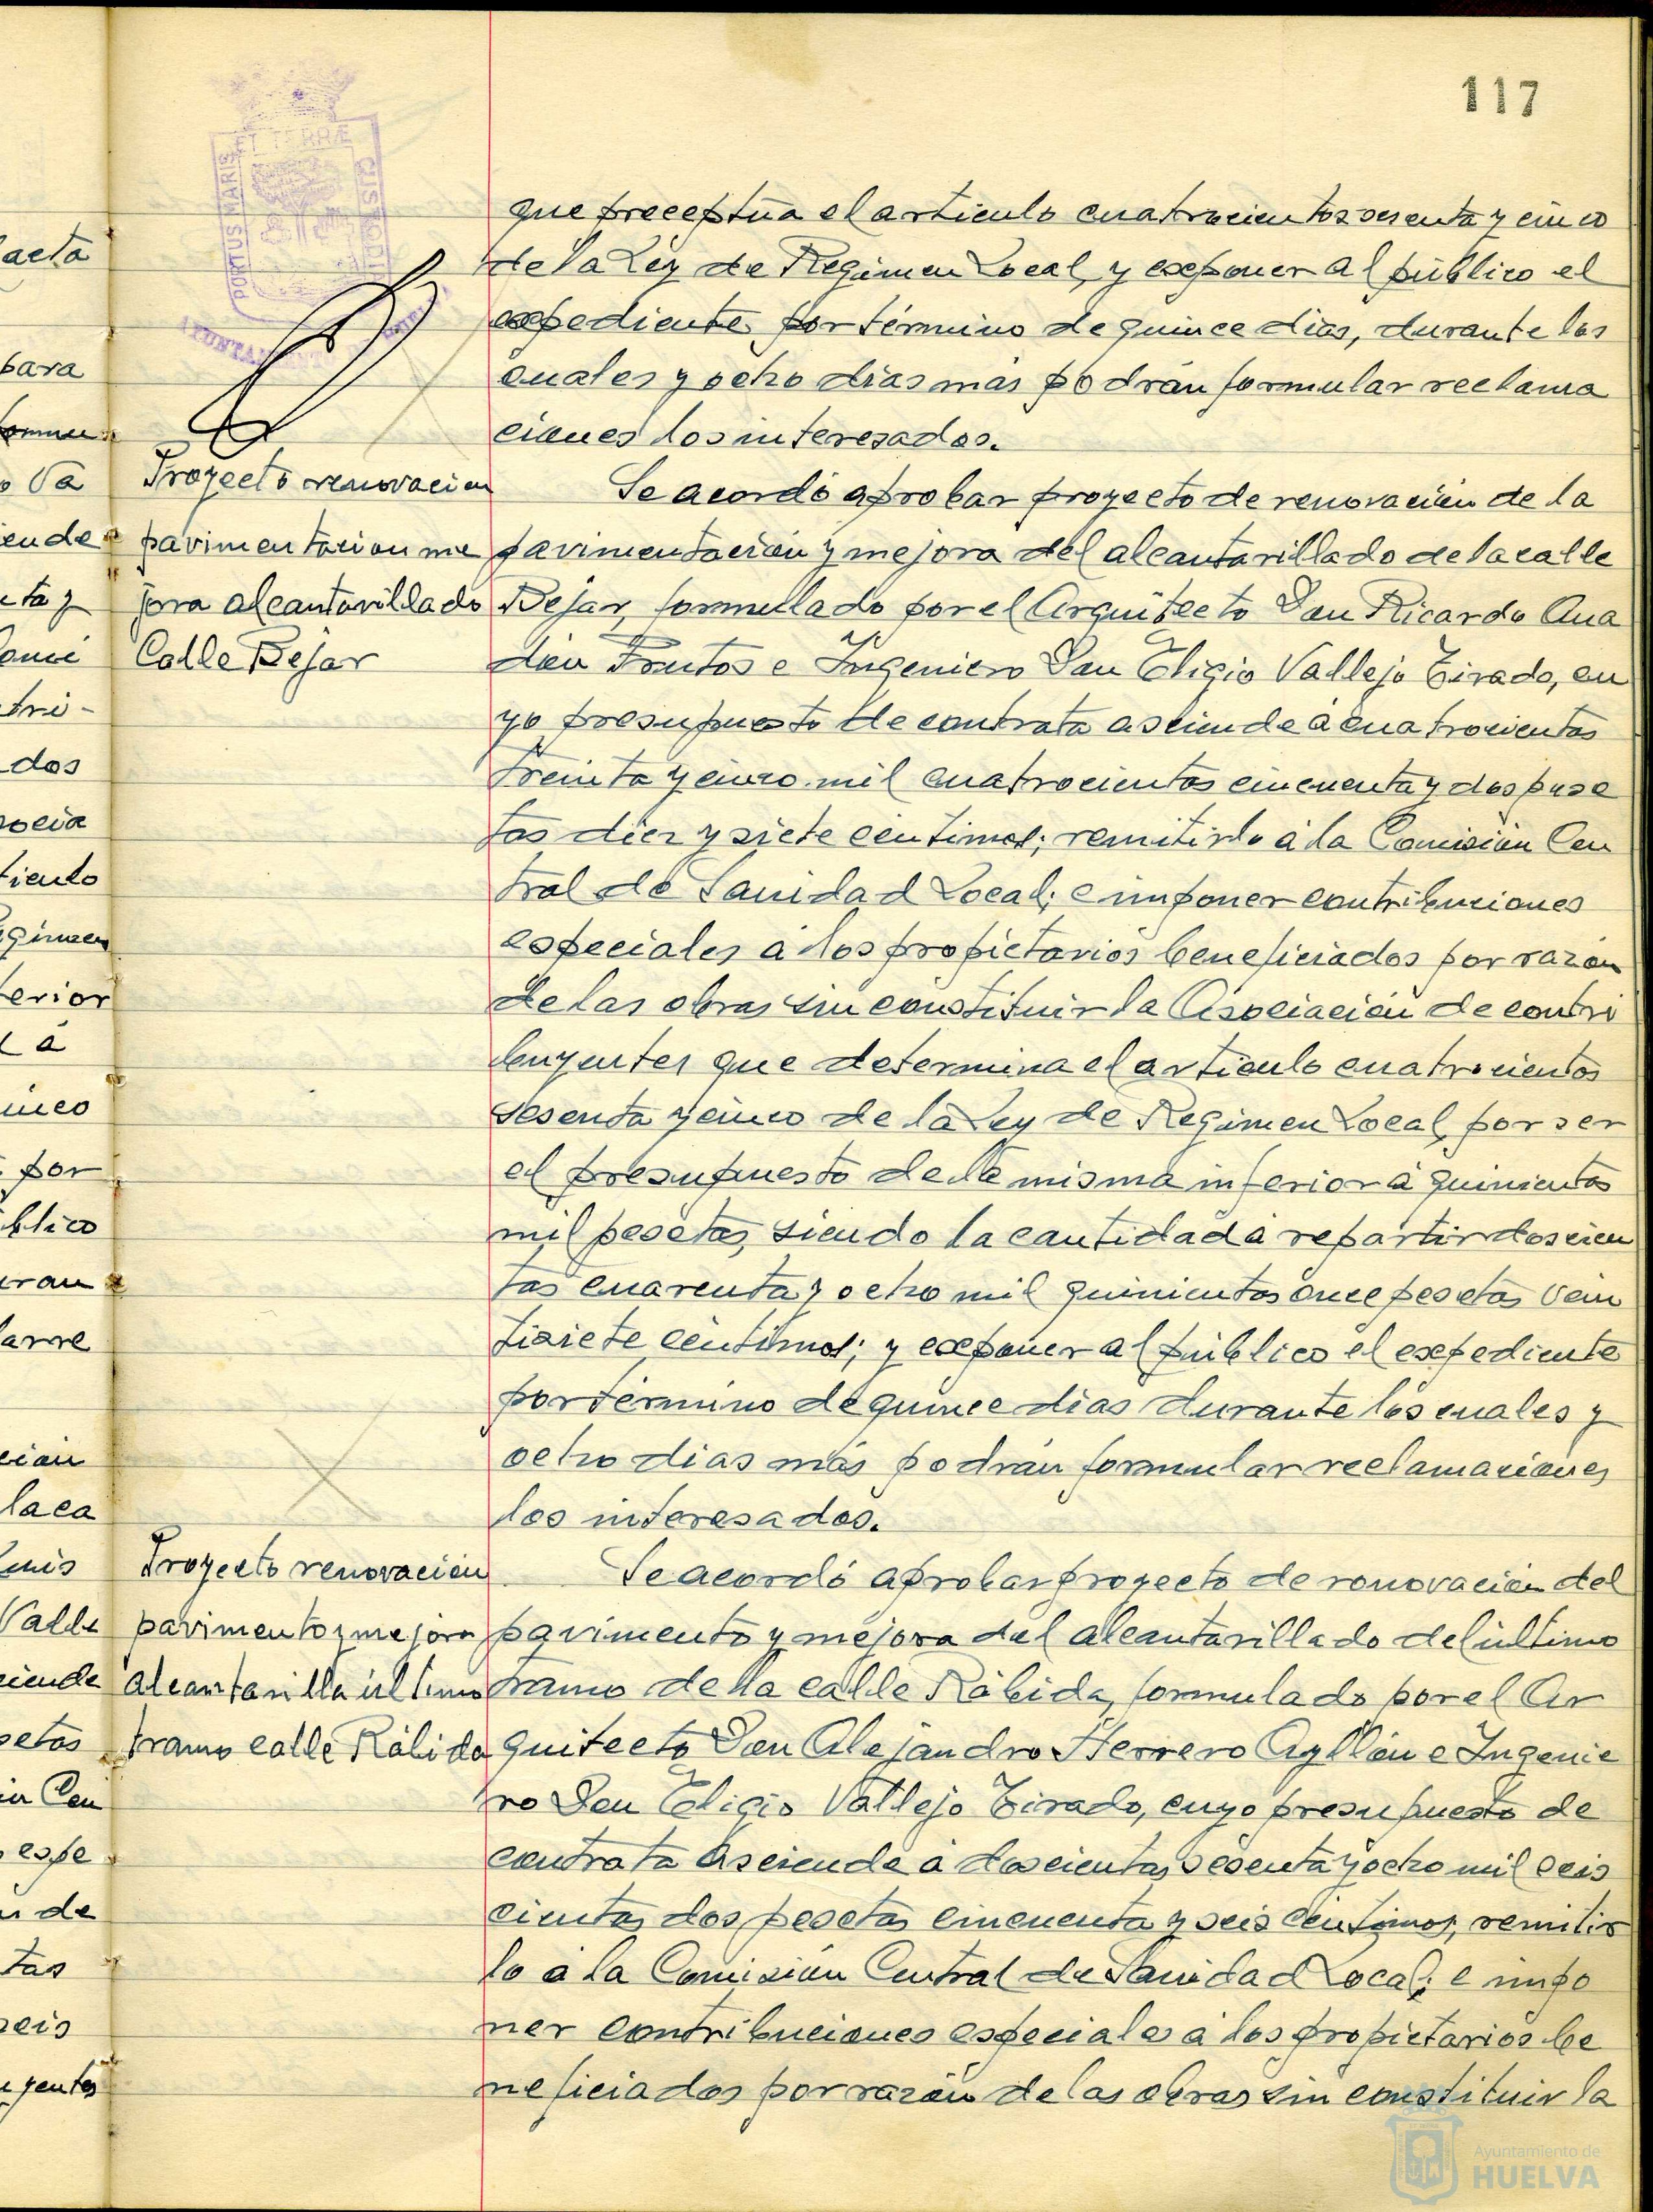 117
PORTUS MARIS ET TERRÆ CUSTODIA
que preceptúa el artículo cuatrocientos sesenta y cinco
de la Ley de Regimen Local, y exponer al público el
expediente por término de quince dias, durante los
cuales y ocho días más podrán formular reclama
ciones los interesados.
Proyecto renovacion
pavimentacion me
jora alcantarillado
Calle Bejar
Se acordó aprobar proyecto de renovación de la
pavimentación y mejora del alcantarillado de la calle
Bejar, formulado por el Arquitecto Don Ricardo Ana
dón Frutos e Ingeniero Don Eligio Vallejo Tirado, cu
yo presupuesto de contrata asciende a cuatrocientas
treinta y cinco mil cuatrocientas cincuenta y dos pese
tas diez y siete centimos; remitirlo á la Comisión Cen
tral de Sanidad Local; e imponer contribuciones
especiales a los propietarios beneficiados por razón
de las obras sin constituir la Asociación de contri
buyentes que determina el artículo cuatrocientos
sesenta y cinco de la Ley de Regimen Local, por ser
el presupuesto de la misma inferior á quinientas
mil pesetas, siendo la cantidad a repartir doscien
tas cuarenta y ocho mil quinientas once pesetas vein
tisiete céntimos; y exponer al público el expediente
por término de quince dias durante los cuales y
ocho dias más podrán formular reclamaciones
los interesados.
Proyecto renovación
pavimento y mejora
alcantarilla último
tramo calle Rábida
Se acordó aprobar proyecto de renovación del
pavimento y mejora del alcantarillado del último
tramo de la calle Rábida, formulado por el Ar
quitecto Don Alejandro Herrero Ayllón e Ingenie
ro Don Eligio Vallejo Tirado, cuyo presupuesto de
contrata asciende a doscientas sesenta y ocho mil seis
cientas dos pesetas cincuenta y seis céntimos; remitir
lo a la Comisión Central de Sanidad Local; e impo
ner contribuciones especiales a los propietarios be
neficiados por razón de las obras sin constituir la
Ayuntamiento de
HUELVA